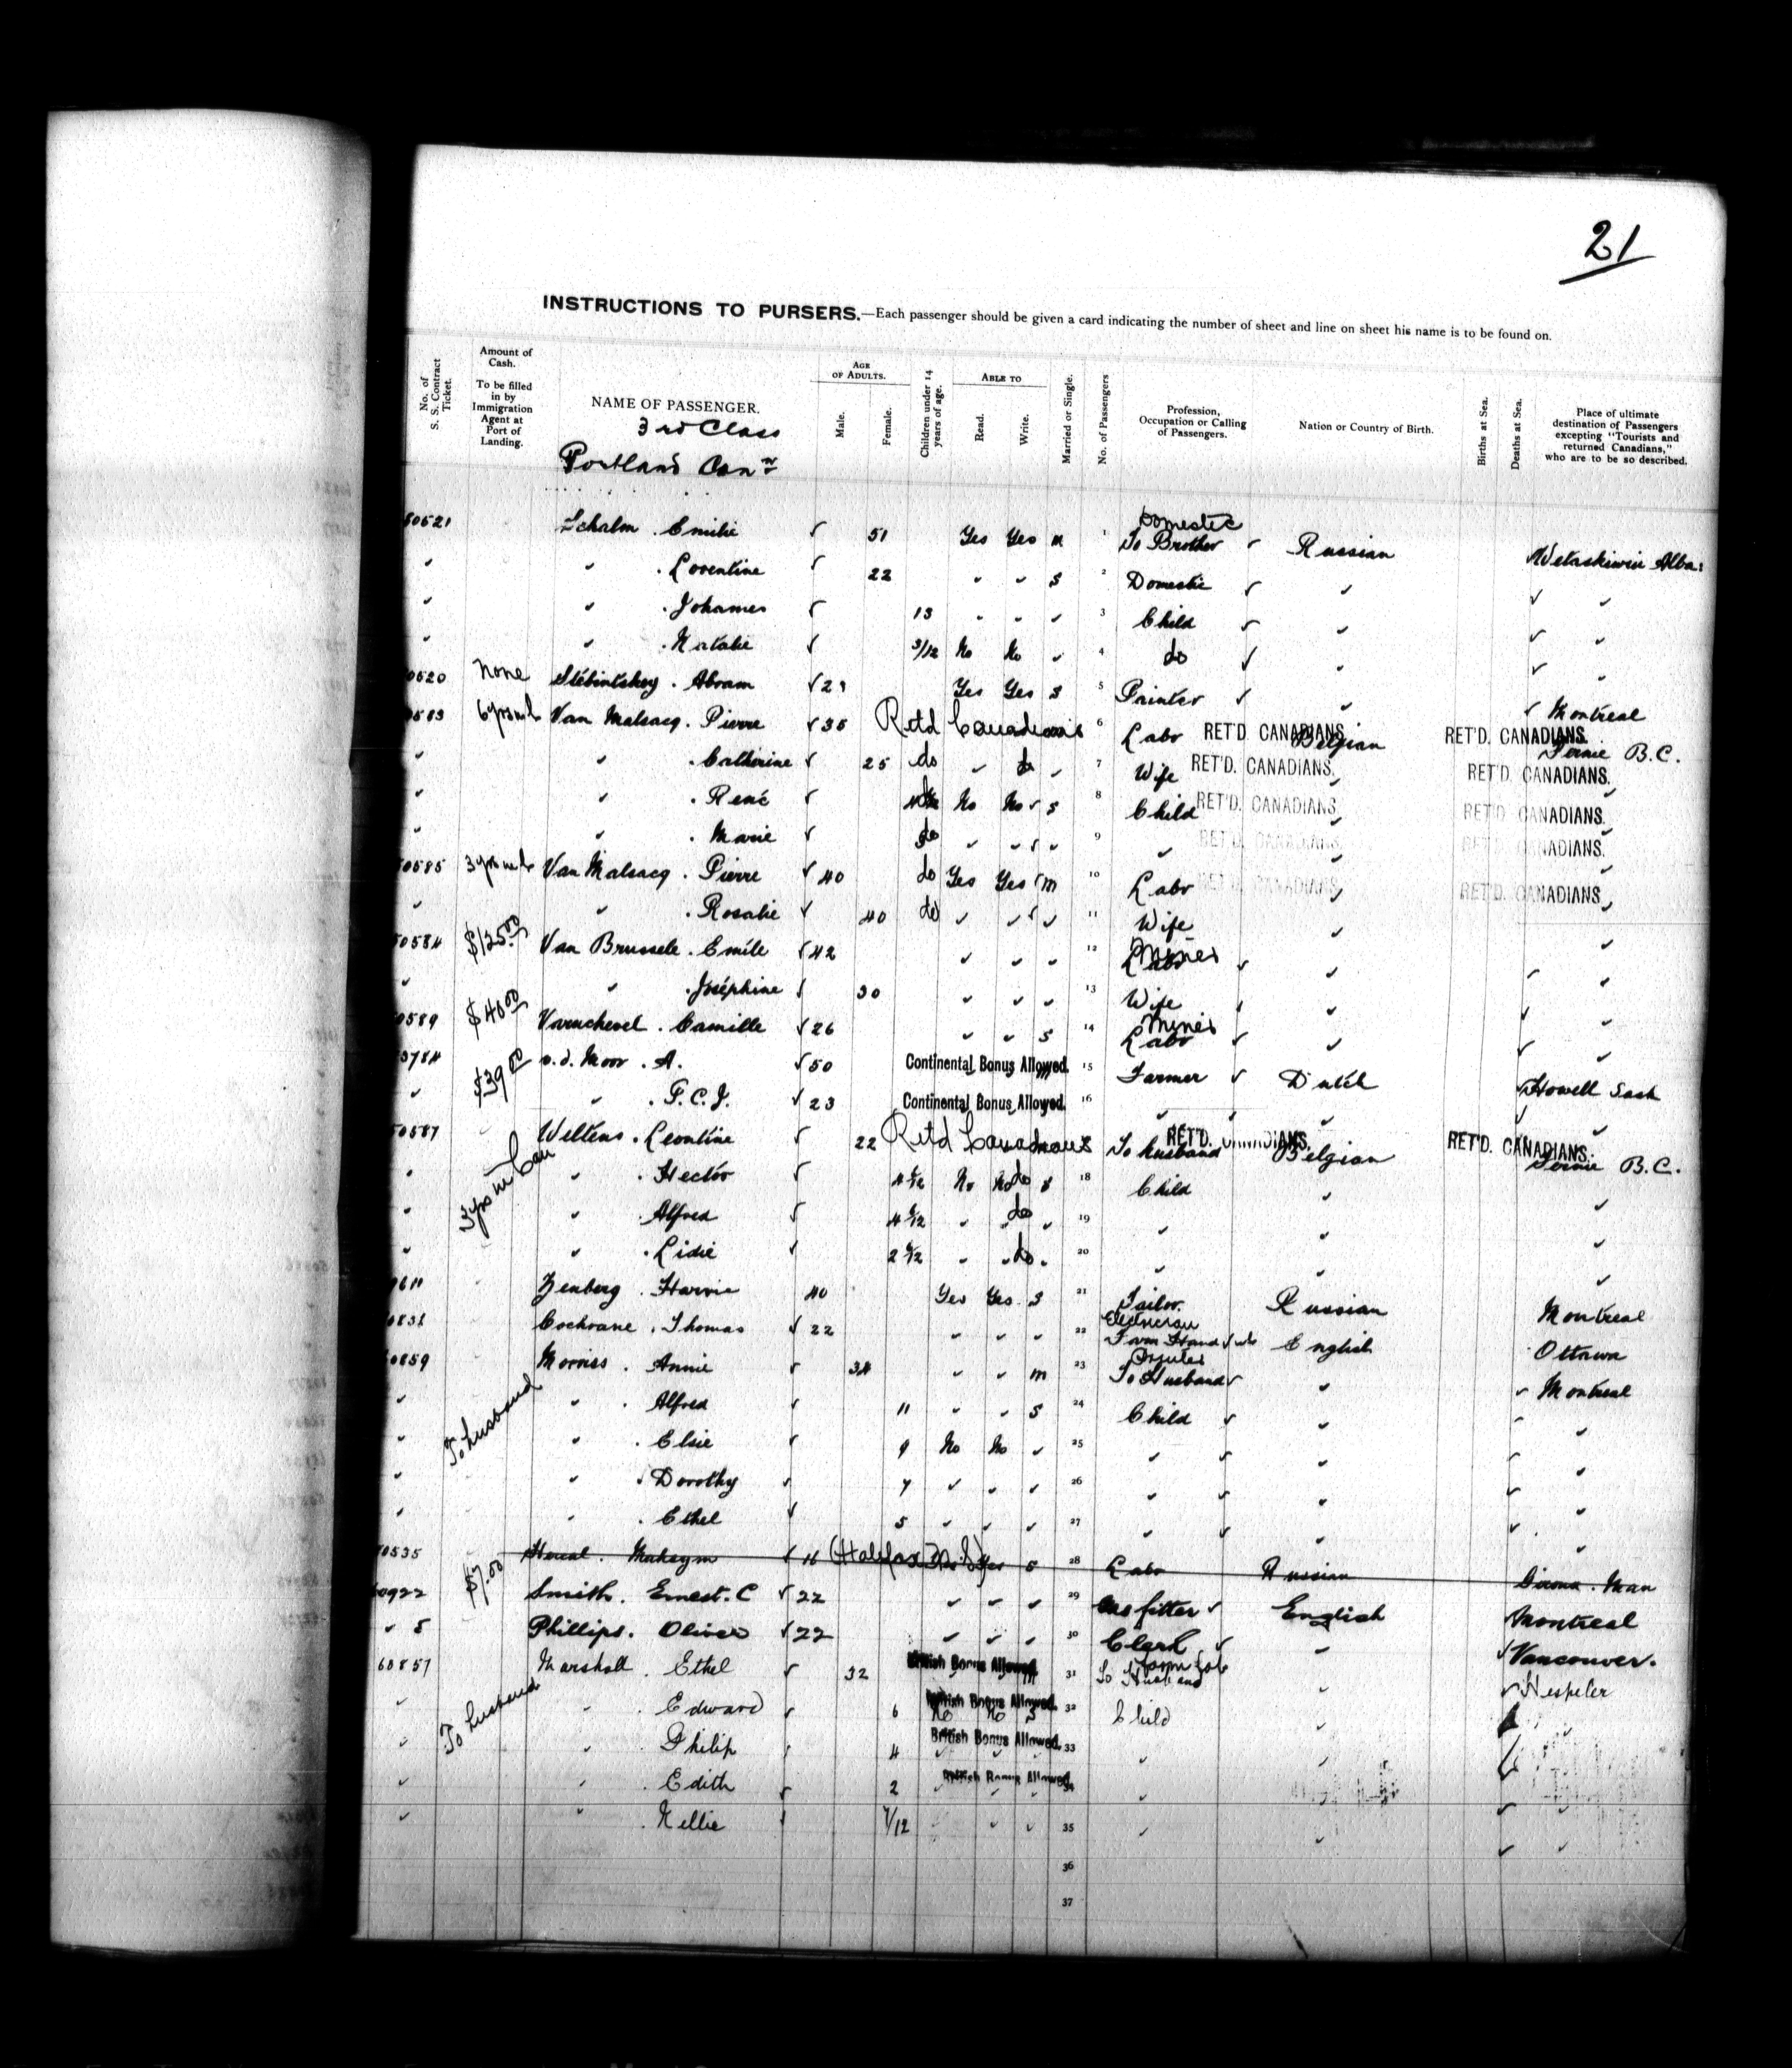 21
INSTRUCTIONS TO PURSERS.—Each passenger should be given a card indicating the number of sheet and line on sheet his name is to be found on.
No. of S. S. Contract Ticket.
Amount of Cash. To be filled in by Immigration Agent at Port of Landing.
NAME OF PASSENGER.
3rd Class
Portland Conn
AGE OF ADULTS. Male. Female.
Children under 14 years of age.
ABLE TO Read. Write.
Married or Single.
No. of Passengers
Profession, Occupation or Calling of Passengers.
Nation or Country of Birth.
Births at Sea.
Deaths at Sea.
Place of ultimate destination of Passengers excepting "Tourists and returned Canadians," who are to be so described.
Domestic
60521 Schalm . Emilie ✓ 51 Yes Yes M 1 To Brother ✓ Russian Wetaskiwin Alba:
" " . Loventine ✓ 22 " " S 2 Domestic ✓ " ✓ "
" " . Johannes ✓ 13 " " " 3 Child ✓ " ✓ "
" " . Natalie ✓ 3/12 No No " 4 do ✓ " ✓ "
0520 None . Abram ✓ Yes Yes S 5 Painter ✓ " ✓ Montreal
Van Malsacq . Pierre ✓ 35 Retd Canadians 6 Labr RET'D. CANADIANS. Belgian RET'D. CANADIANS. Fernie B.C.
" " . Catherine ✓ 25 do " do " 7 Wife RET'D. CANADIANS. RET'D. CANADIANS. "
" " . René ✓ No No ✓ S 8 Child RET'D. CANADIANS. " RET'D. CANADIANS. "
" . Marie ✓ do " " " 9 " RET'D. CANADIANS. " RET'D. CANADIANS. "
60585 Van Malsacq . Pierre ✓ 40 do Yes Yes M 10 Labr RET'D. CANADIANS " RET'D. CANADIANS. "
" " . Rosalie ✓ 40 do " " " 11 Wife " "
60584 $125.00 Van Brussele . Emile ✓ 42 " " " 12 Miner Labr ✓ " "
" " . Joséphine ✓ 30 " " " 13 Wife " "
0589 $40.00 . Camille ✓ 26 " " S 14 Miner Labr ✓ " "
$39.00 v.d. Moor . A. ✓ 50 Continental Bonus Allowed. 15 Farmer ✓ Dutch ✓ Howell Sask
" " . P.C.J. ✓ 23 Continental Bonus Allowed. 16 " " " "
60587 3 yrs in Can Weltens . Leontine ✓ 22 Retd Canadians To husband RET'D. CANADIANS. Belgian RET'D. CANADIANS. Fernie B.C.
" " . Hector ✓ No No do S 18 Child " "
" " . Alfred ✓ " do " 19 " " "
" " . Lidie ✓ " do " 20 " " "
0611 Zenberg . 40 Yes Yes S 21 Tailor. Russian Montreal
Electrician
0831 Cochrane . Thomas ✓ 22 " " " 22 Farm Hand English Ottawa
60859 To husband Morriss . Annie ✓ 34 " " M 23 To Husband ✓ " ✓ Montreal
" " . Alfred ✓ 11 " " S 24 Child ✓ " "
" " . Elsie ✓ 9 No No " 25 " ✓ " "
" " . Dorothy ✓ 7 " " " 26 " ✓ " "
" " . Ethel ✓ 5 " " " 27 " ✓ " "
60535 . Maksym ✓ 16 (Halifax N.S) Yes S 28 Labr Russian Man
60922 $7.00 Smith . Ernest. C ✓ 22 " " " 29 Gas fitter ✓ English Montreal
" 5 Phillips . Oliver ✓ 22 " " " 30 Clerk ✓ " ✓ Vancouver.
60857 To husband Marshall . Ethel ✓ 32 British Bonus Allowed. 31 To Husband " ✓ Hespeler
" " . Edward ✓ 6 No No S British Bonus Allowed. 32 Child " "
" " . Philip ✓ 4 British Bonus Allowed. 33 " " "
" " . Edith ✓ 2 British Bonus Allowed. 34 " " "
" " . Nellie ✓ 7/12 " " " 35 " " "
36
37